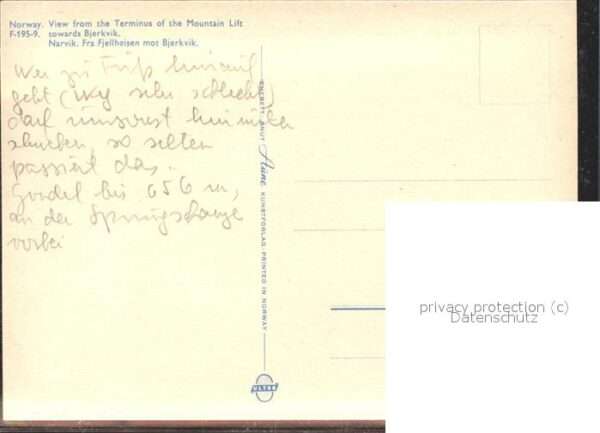 Norway. View from the Terminus of the Mountain Lift
F-195-9. towards Bjerkvik.
Narvik. Fra Fjellheisen mot Bjerkvik.
Wer zu Fuß hinauf
geht (Weg sehr schlecht)
darf umsonst hinunter
, so selten
passiert das.
Gondel bis 656 m,
an der Sprungschanze
vorbei
ENERETT: KNUT Aune KUNSTFORLAG. PRINTED IN NORWAY
ULTRA
privacy protection (c)
Datenschutz